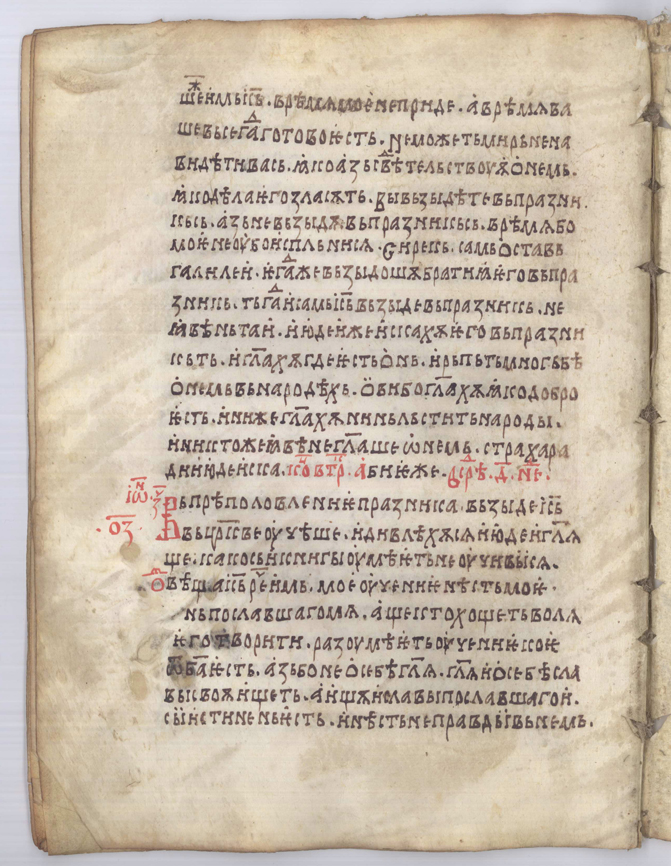 же имь іс҃ъ. врѣмя мое не приде. а врѣмя ва
ше вьсегда готово ѥсть. не можеть мирь нена
видѣти вась. ꙗко азь свѣтельствоуѫ о немь.
ꙗко дѣла ѥго зла сѫть. вы вьзыдѣте вь празни
кь сь. азь не вьзыдѫ вь праздникь сь. врѣмя бо
мое не оу бо испльнися. си рекь. самь оста вь
галилеи. ѥгд҃а же вьзыдошѫ братиꙗ ѥго вь пра
зникь. тьгд҃а и самь іс҃ь вьзыде вь празникь. не
ꙗвѣ нь таи. июдеи же искахѫ ѥго вь празни
кь ть. и гл҃ахѫ где ѥсть онь. и рьпьть многь бѣ
о немь вь народѣхь. ови бо гл҃ахѫ ꙗко добро
ѥсть. ини же гл҃ахѫ ни нь льстить народы.
никтоже ꙗвѣ не гл҃аше ѡ немь. страха ра
ди июдеиска. абиѥ же. срѣ. д҃. не҃.
іѡ҃. з҃.
Вь прѣполовлениѥ празника. вьзыде іс҃ь
·о҃з·
вь цр҃квь е оучѣше. и дивлѣхѫся июдеи гл҃я
ще. како сь книгы оумѣѥть не оучивься.
ѿвѣща іс҃ь рече имь. мое оучениѥ нѣсть моѥ
нь пославшаго мѧ. аще кто хощеть волѧ
ѥго творити. разоумѣѥть оучениѥ коѥ
ѿ ба҃ ѥсть. азь бо не о себѣ гл҃ѧ. гл҃ѧи о себѣ сла
вы своѧ ищеть. а ищѧи славы пославшаго и.
сы истинень ѥсть. и нѣсть неправды вь немь.